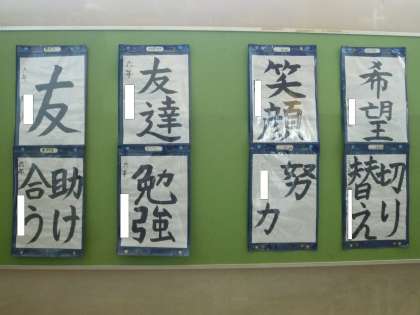 友
友達
六年
笑顔
希望
助け
合う
六年
勉強
努
力
切り
替え